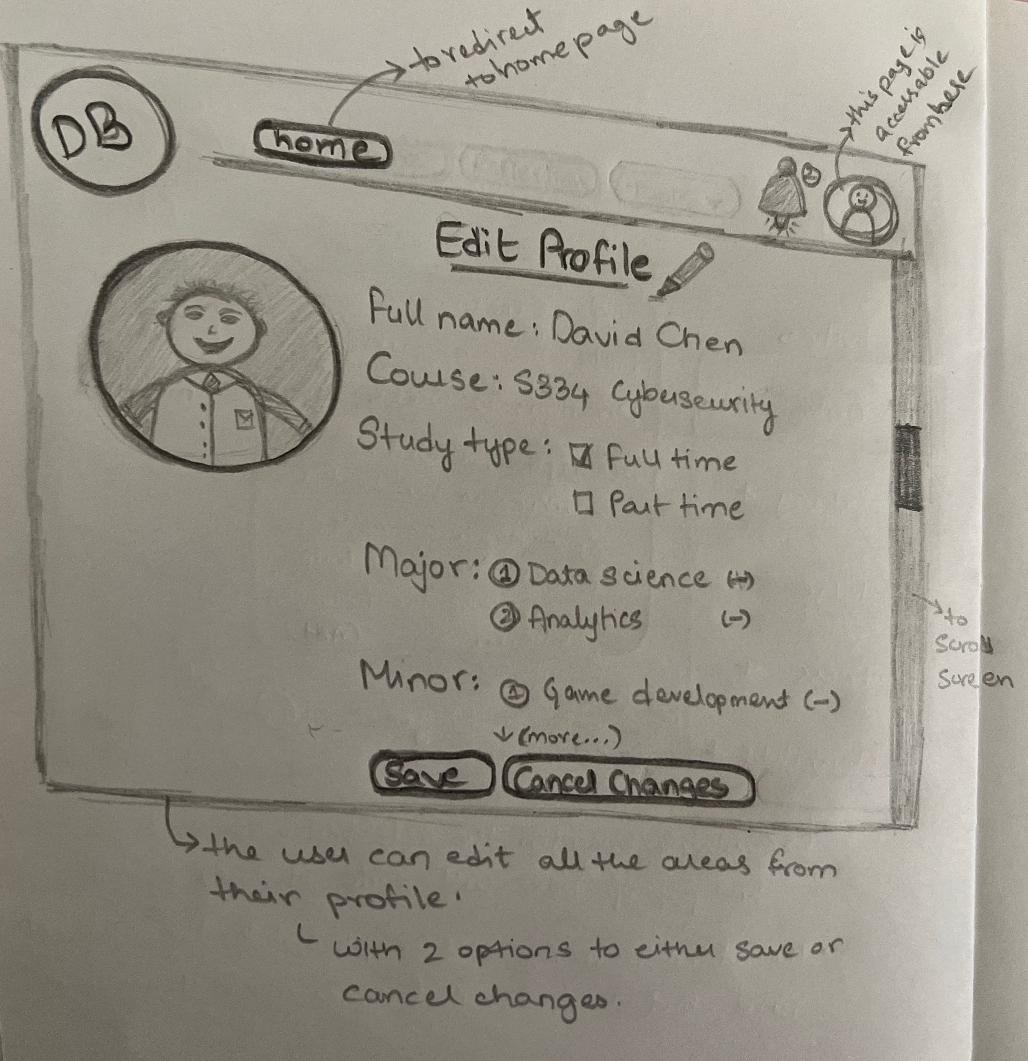 to redirect
to home page
this page is
accessable
from here
DB
home
2
Edit Profile
Full name: David Chen
Course: S334 Cybersecurity
Study type: ☑ Full time
☐ Part time
Major: ① Data science (+)
② Analytics (-)
Minor: ① Game development (-)
↓ (more...)
Save Cancel Changes
to
scroll
screen
the user can edit all the areas from
their profile.
with 2 options to either save or
cancel changes.